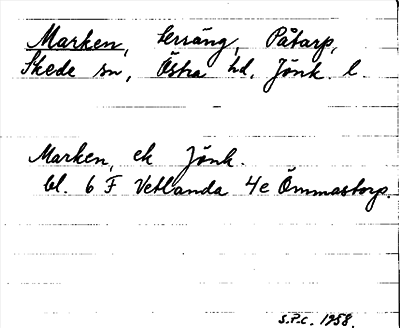 Marken, terräng, Påtarp,
Skede sn, Östra hd, Jönk. l.
Marken, ek Jönk.
bl. 6 F Vetlanda 4e Ömmastorp.
S.P.C. 1958.